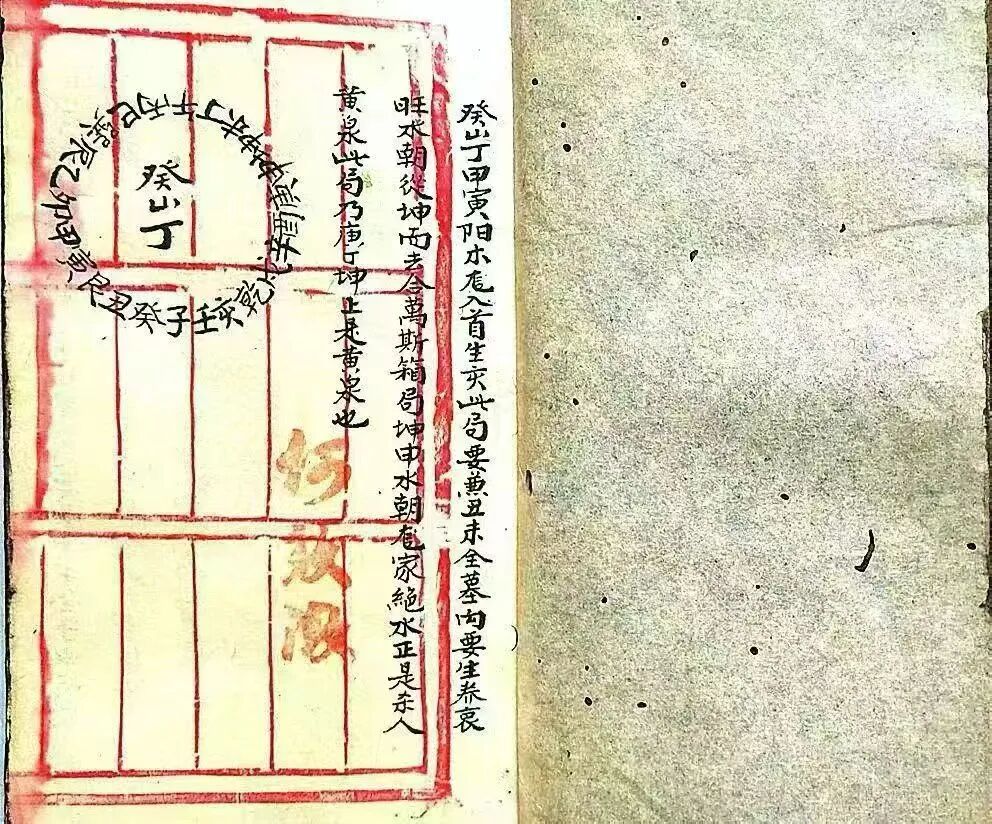 癸山丁甲寅阳木尨入首生亥此局要兼丑未全墓内要生养衰
旺水朝從坤而去合萬斯箱局坤申水朝尨家絶水正是杀人
黄泉此局乃庚丁坤上是黄泉也
癸山丁
壬子癸丑艮寅甲卯乙辰巽巳丙午丁未坤申庚酉辛戌乾亥
何